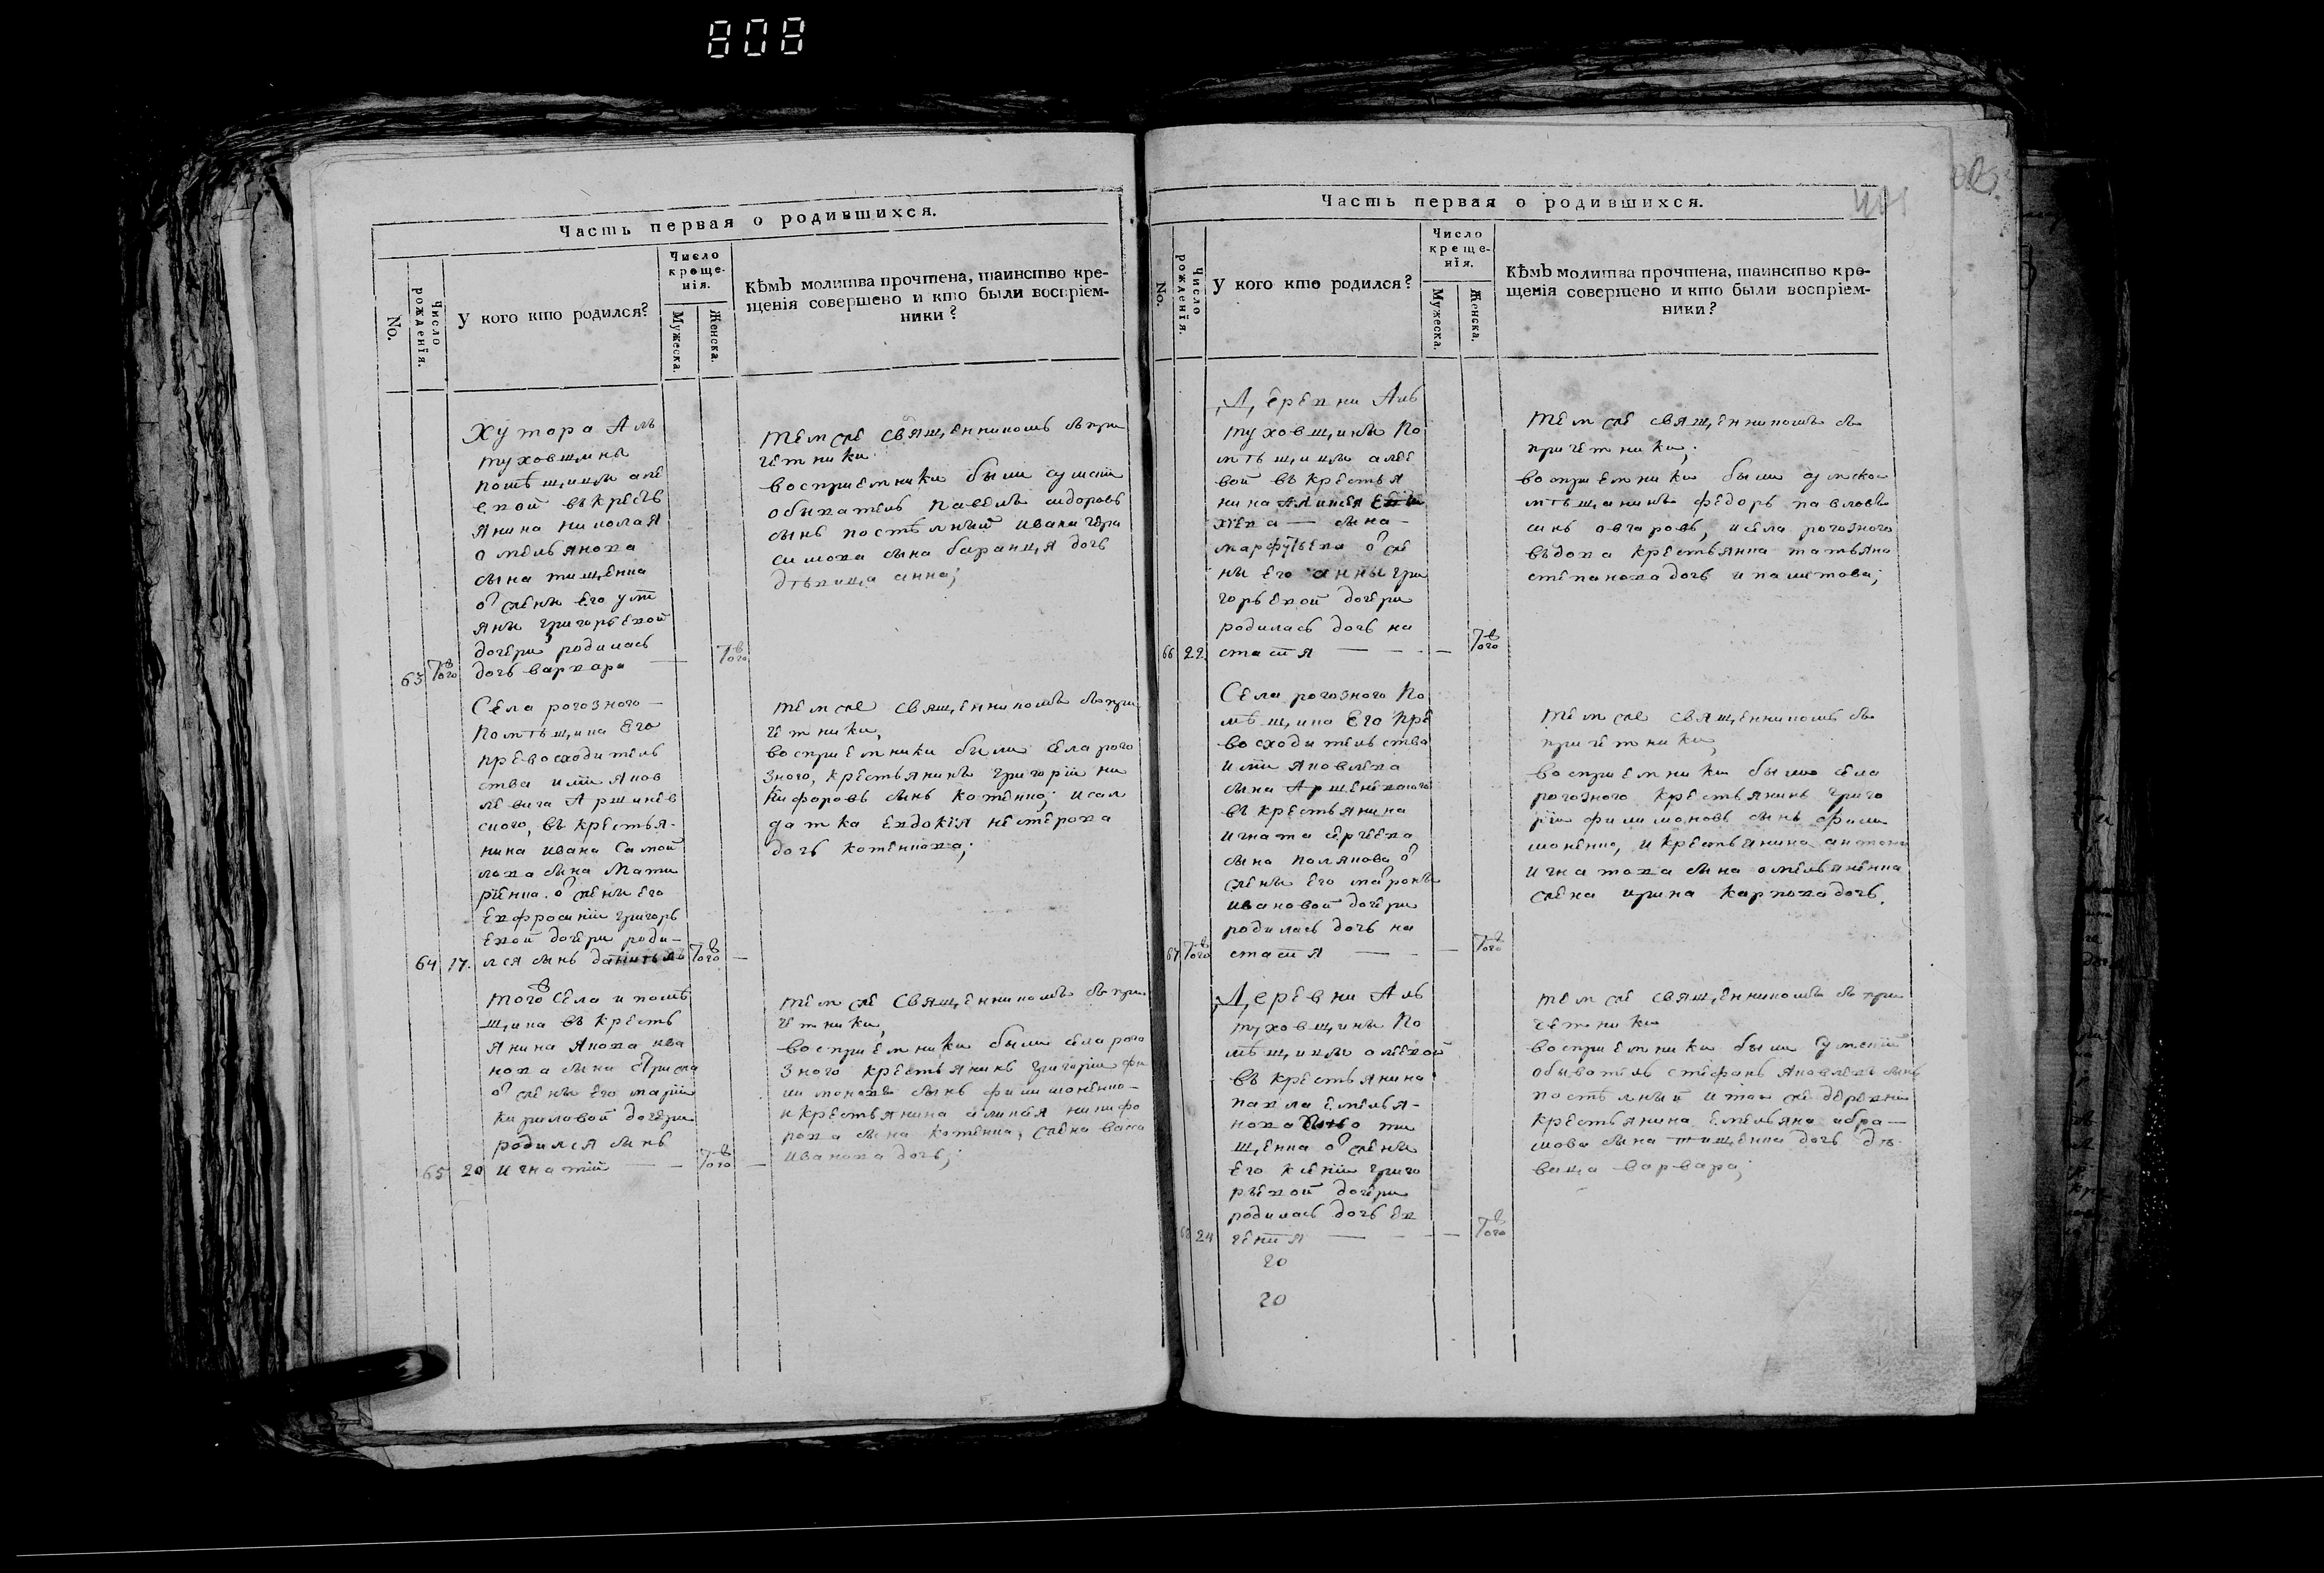 808
Часть первая о родившихся.
No.
Число рожденія.
У кого кто родился?
Число креще-
нія.
Мужеска.
Женска.
Кѣмъ молитва прочтена, таинство кре-
щенія совершено и кто были воспріем-
ники?
Хутора Аль
туховщины
помѣщицы але
евой въ кресть
янина николая
омельянова
сына тищенка
о? жены его ул
яны григорьевой
дочери родилась
63 Того дочь варвара — Того
темже священникомъ съ при
четники
восприемники были сумскій
обыватель павелъ сидоровъ
сынъ постельный ивана гера
симова сына баранця дочь
дѣвица анна;
Села рогозного —
помѣщика Его
превосходитель
ства иліи яков
левича Аршинев
ского, въ крестья-
нина ивана Самой
лова сына Мати
о? жены его
Евфросиніи григорь
евой дочери роди-
64 17. лся сынъ даніилъ Того —
темже священникомъ съ при
четники,
восприемники были села рого
зного, крестьянинъ григорій ни
кифоровъ сынъ котенко; и сол
датка евдокія нестерова
дочь котенкова;
того села и помѣ
щика въ кресть
янина якова ива
нова сына
о? жены его маріи
кириловой дочери
родился сынъ
65 20 игнатій — Того —
темже священникомъ съ при
четники,
восприемники были села рого
зного крестьянинъ григорій фи
лимоновъ сынъ филимоненко-
и крестьянина алиѯея никифо
рова сына котенка, жена васса
иванова дочь;
Часть первая о родившихся.
No.
Число рожденія.
У кого кто родился?
Число креще-
нія.
Мужеска.
Женска.
Кѣмъ молитва прочтена, таинство кре-
щенія совершено и кто были воспріем-
ники?
Деревни Аль
туховщины по
мѣщицы алее
вой въ крестья
нина
— сына —
о? же
ны его анны гри
горьевой дочери
родилась дочь на
66 22. стасія — — Того
темже священникомъ съ
причетники;
восприемники были сумской
мѣщанинъ федоръ павловъ
синъ овчаровъ, и села рогозного
вѣдова крестьянка татьяна
степанова дочь
Села рогозного по
мѣщика Его пре
восходительства
иліи яковлева
сына Аршеневского
въ крестьянина
игната сергеева
сына полякова о?
жены его матроны
ивановой дочери
родилась дочь на
67 Того стасія — — Того
темже священникомъ съ
причетники,
восприемники были села
рогозного крестьянинъ григо
рій филимоновъ сынъ фили
моненко, и крестьянина антона
игнатова сына омельяненка
жена ирина карпова дочь.
Деревни Аль
туховщины по
мѣщицы олеевой
въ крестьянина
павла емелья-
нова ти
щенка о? жены
его ксеніи григо
рьевой дочери
родилась дочь ев
68 24 генія — — Того
20
20
темже священникомъ съ при
четники
восприемники были сумскій
обыватель стефанъ яковлевъ сынъ
постельный и тоей же деревни
крестьянина емельяна абра-
мова сына тищенка дочь дѣ-
вица варвара;